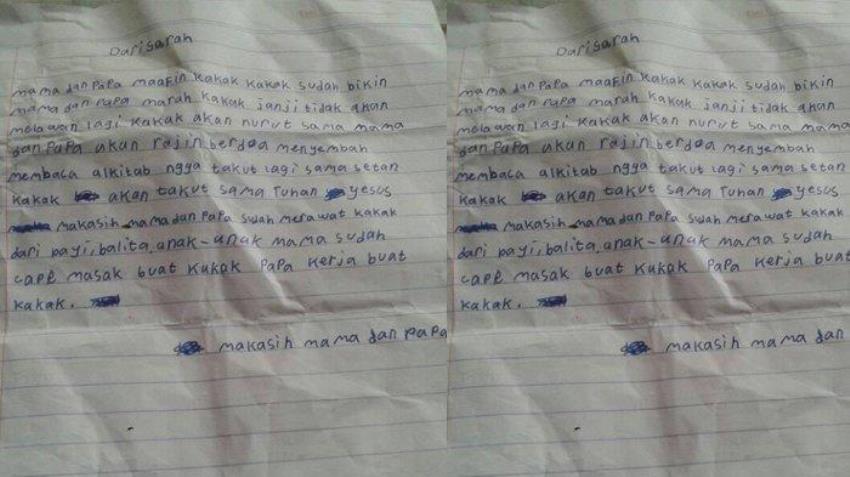 Darisarah
mama dan papa maafin kakak kakak sudah bikin
mama dan papa marah kakak janji tidak akan
melawan lagi kakak akan nurut sama mama
dan papa akan rajin berdoa menyembah
membaca alkitab ngga takut lagi sama setan
kakak akan takut sama Tuhan yesus
makasih mama dan papa sudah merawat kakak
dari bayi, balita, anak-anak mama sudah
cape masak buat kakak papa kerja buat
kakak.
makasih mama dan papa
Darisarah
mama dan papa maafin kakak kakak sudah bikin
mama dan papa marah kakak janji tidak akan
melawan lagi kakak akan nurut sama mama
dan papa akan rajin berdoa menyembah
membaca alkitab ngga takut lagi sama setan
kakak akan takut sama Tuhan yesus
makasih mama dan papa sudah merawat kakak
dari bayi, balita, anak-anak mama sudah
cape masak buat kakak papa kerja buat
kakak.
makasih mama dan